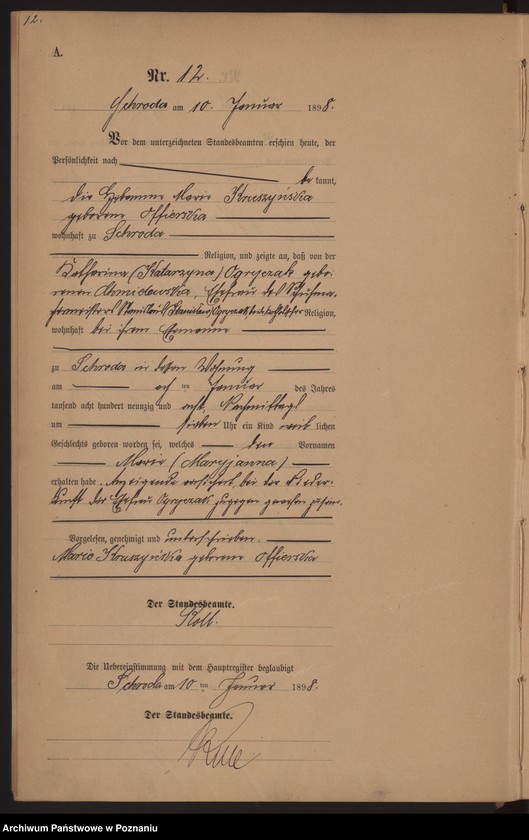 12.
A.
Nr. 12.
Schroda am 10. Januar 1898.
Vor dem unterzeichneten Standesbeamten erschien heute, der
Persönlichkeit nach
be kannt,
die Hebamme Marie Kruszyńska
geborene Offierska
wohnhaft zu Schroda
Religion, und zeigte an, daß von der
Katharina (Katarzyna) Ogryczak gebo-
renen Ehefrau des Schuhma-
chermeisters Stanislaus (Stanisław) Ogryczak, beide katholischer Religion,
wohnhaft bei ihrem Ehemanne
zu Schroda in dessen Wohnung
am acht ten Januar des Jahres
tausend acht hundert neunzig und acht, Nachmittags
um sieben Uhr ein Kind weib lichen
Geschlechts geboren worden sei, welches den Vornamen
Marie (Maryjanna)
erhalten habe. Anzeigende versichert, bei der Nieder-
kunft der Ehefrau Ogryczak zugegen gewesen zu sein.
Vorgelesen, genehmigt und unterschrieben.
Marie Kruszyńska geborene Offierska
Der Standesbeamte.
Roll.
Die Uebereinstimmung mit dem Hauptregister beglaubigt
Schroda am 10 ten Januar 1898.
Der Standesbeamte.
Archiwum Państwowe w Poznaniu